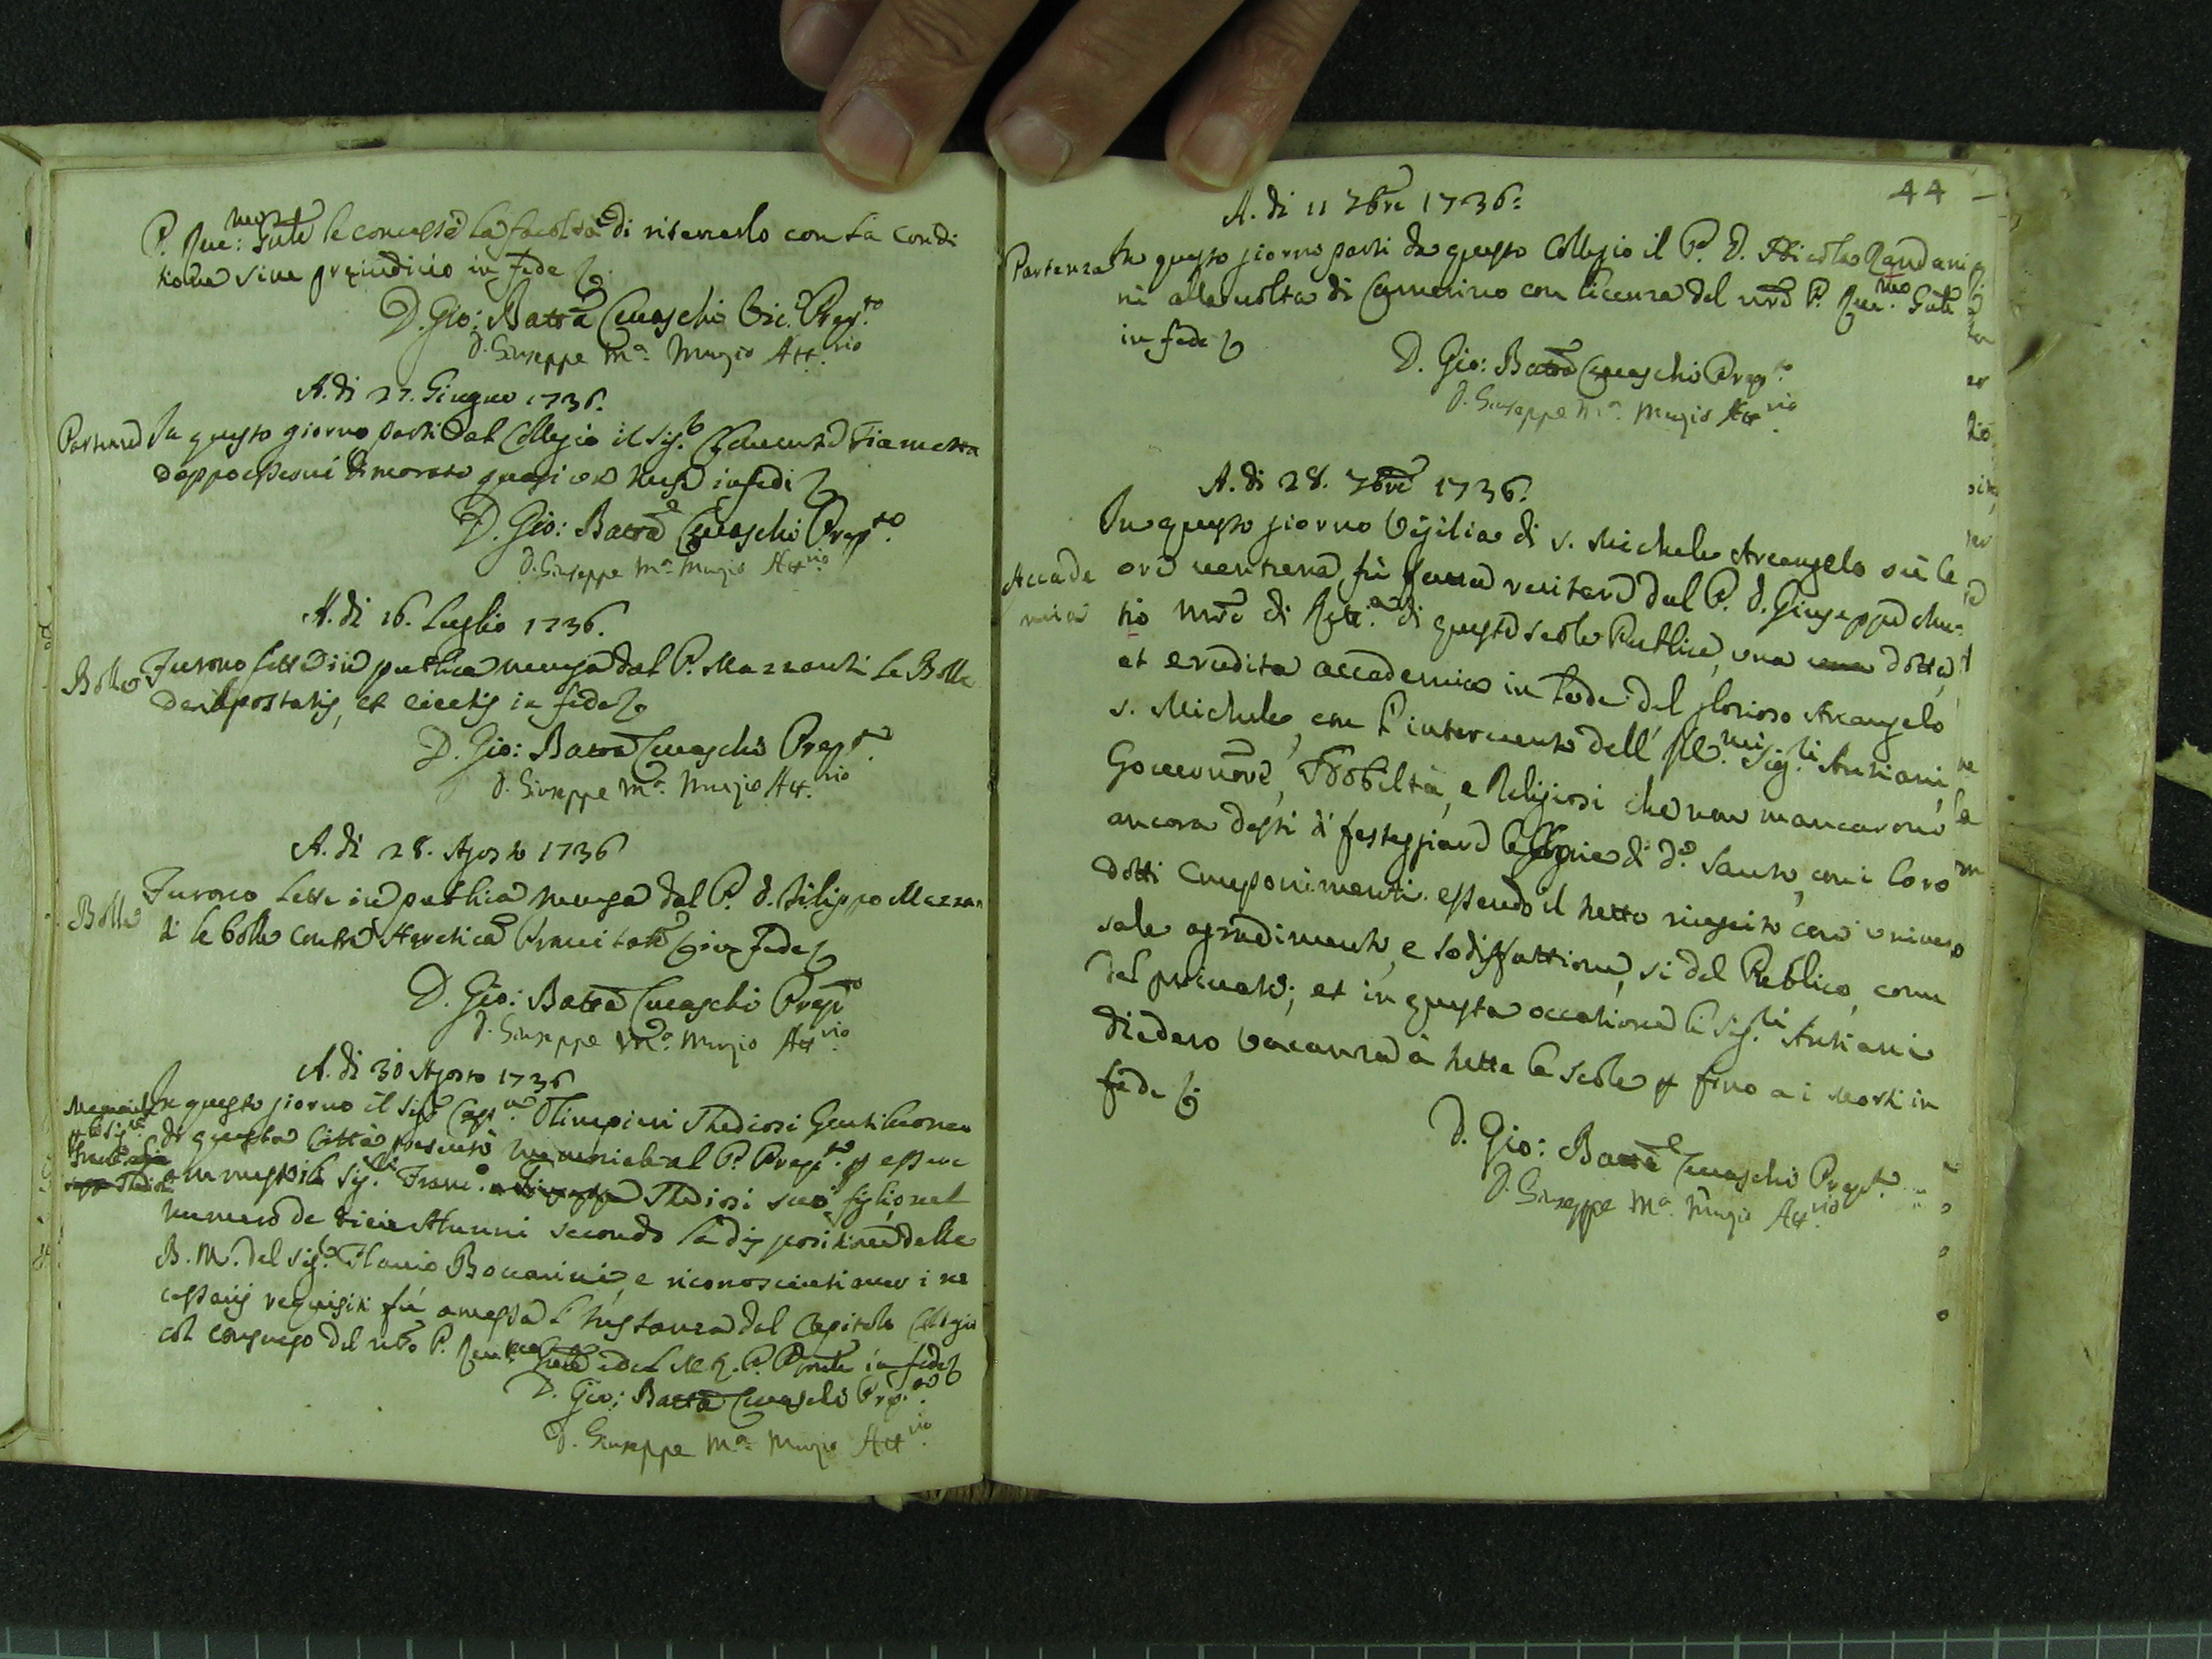 P. Rev:mo Gñle le concesse la facoltà di ritenerlo con la condi
tione sine preiudicio in fede
D. Gio: Batta Cevaschi Vic. Prep.to
D. Giuseppe Ma. Muzio Att.rio
A. di 27. Giugno 1736.
Partenza In questo giorno partì dal Collegio il Sig.r Clemente Fiametta
doppo essersi dimorato quasi un mese in fede
D. Gio: Batta Cevaschi Prep.to
D. Giuseppe Ma. Muzio Att.rio
A. di 16. Luglio 1736.
Bolle Furono lette in publica mensa dal P. Mazzanti le Bolle
de Apostatis, et eiectis in fede
D. Gio: Batta Cevaschi Prep.to
D. Giuseppe Ma. Muzio Att.rio
A. di 28. Agosto 1736
Bolle Furono lette in publica mensa dal P. D. Filippo Mazzan
ti le bolle contra Hereticã Pravitatẽ in fede
D. Gio: Batta Cevaschi Prepto
D. Giuseppe Ma. Muzio Att.rio
A. di 30 Agosto 1736
Memoriale In questo giorno il Sig.r Cap.no Olimpieri Thediosi Gentilhuomo
di questa Città presentò memoriale al P. Prep.to p essere
ammesso il Sig.r Franc.o Thediosi suo figlio nel
numero de dieci Alunni secondo la dispositione della
B. M. del Sig.r Flavio Boccarini, e riconosciuti i ne
cessarij requisiti fù amessa l'instanza dal Capitolo Collegiale
col consenso del nro P. Rev.mo Gñle e del M. R. P. Prõnle in fede
D. Gio: Batta Cevaschi Prep.to
D. Giuseppe Ma. Muzio Att.rio
44
A. di 11 7bre 1736:
Partenza In questo giorno partì da questo Collegio il P. D. Nicola Zandari
ni alla volta di Camerino con licenza del nrõ P. Rev.mo Gñle
in fede
D. Gio: Batta Cevaschi Prep.to
D. Giuseppe Ma. Muzio Att.rio
A. di 28. 7bre 1736.
In questo giorno Vigilia di S. Michele Arcangelo sù le
Accade
mia
ore ventitre, fù fatta recitare dal P. D. Giuseppe Mu-
tio Mrõ di Ret.ca di queste scole Publice, una dotta,
et erudita accademia in lode del glorioso Arcangelo
S. Michele, con l'intervento dell' Ill.mi Sig.ri Antiani,
Governore, Nobiltà, e Religiosi che non mancarono
ancora dessi di festeggiare le glorie di d.o Santo, con i loro
dotti componimenti. essendo il tutto riuscito con univer
sale agradimento, e sodisfattione, sì del Publico, come
del privato; et in questa occasione li Sig.ri Antiani
diedero vacanza à tutte le scole p fino a i Morti in
fede
D. Gio: Batta Cevaschi Prep.to
D. Giuseppe Ma. Muzio Att.rio